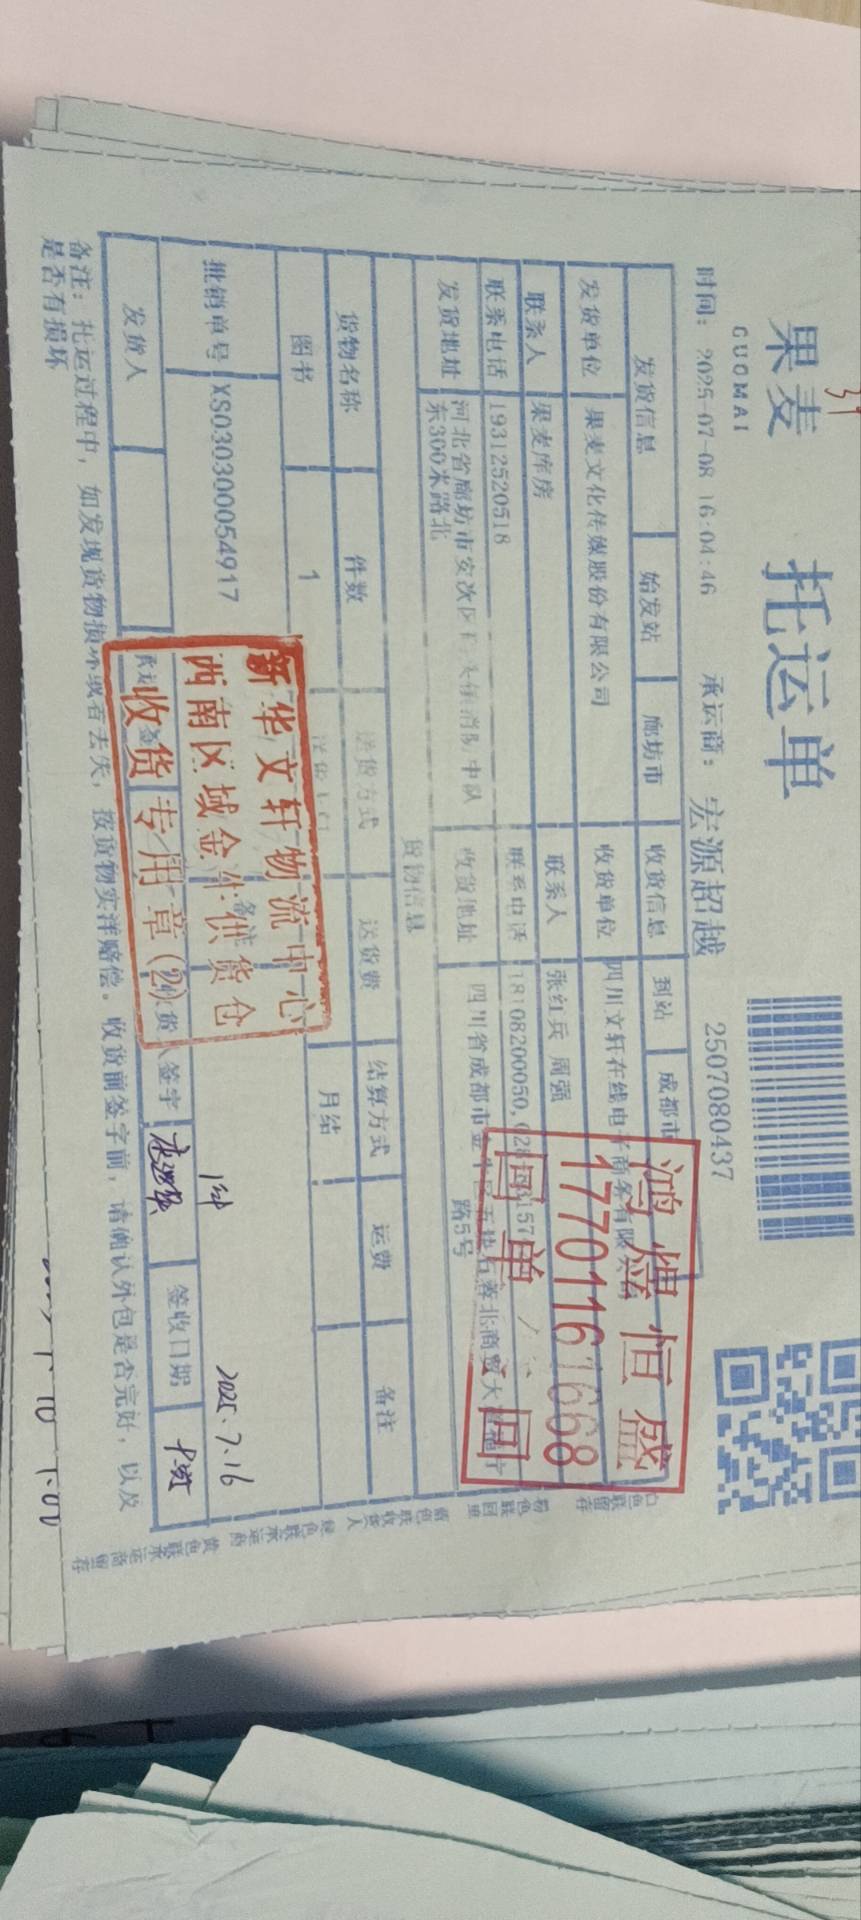 果麦
GUOMAI
托运单
时间：2025-07-08 16:04:46 承运商：宏源超越 2507080437
发货信息 始发站 廊坊市 收货信息 到站 成都市
发货单位 果麦文化传媒股份有限公司 收货单位 四川文轩在线电子商务有限
联系人 果麦库房 联系人 张红兵 周强
联系电话 19312520518 联系电话 18108200050,
发货地址 河北省廊坊市安次区 消防中队
东300米路北
收货地址 四川省成都市金牛区 北商贸大
路5号
货物信息
货物名称 件数 送货方式 送货费 结算方式 运费 备注
图书 1 月结
批销单号 XS030300054917 备注 1件 2025.7.16
发货人 收货人签字 签收日期
备注：托运过程中，如发现货物损坏或者丢失，按货物实洋赔偿。收货前签字前，请确认外包是否完好，以及
是否有损坏
白色联留存
粉色联回重
蓝色联收货人
绿色联承运商
黄色联承运商留存
鸿熠恒盛
17701161668
回单
回
新华文轩物流中心
西南区域金牛供货仓
收货专用章(24)